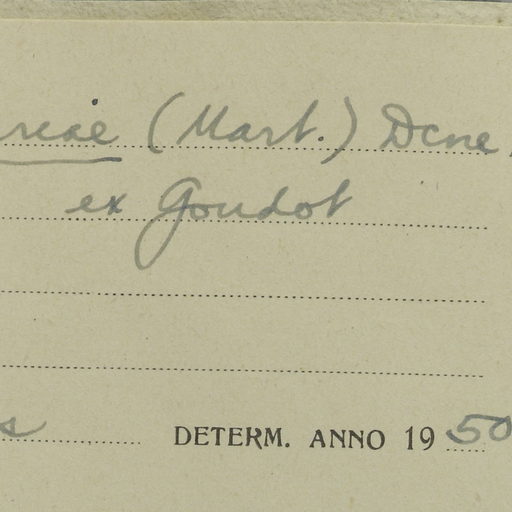 (Mart.) Dcne
ex Goudot
s DETERM. ANNO 1950